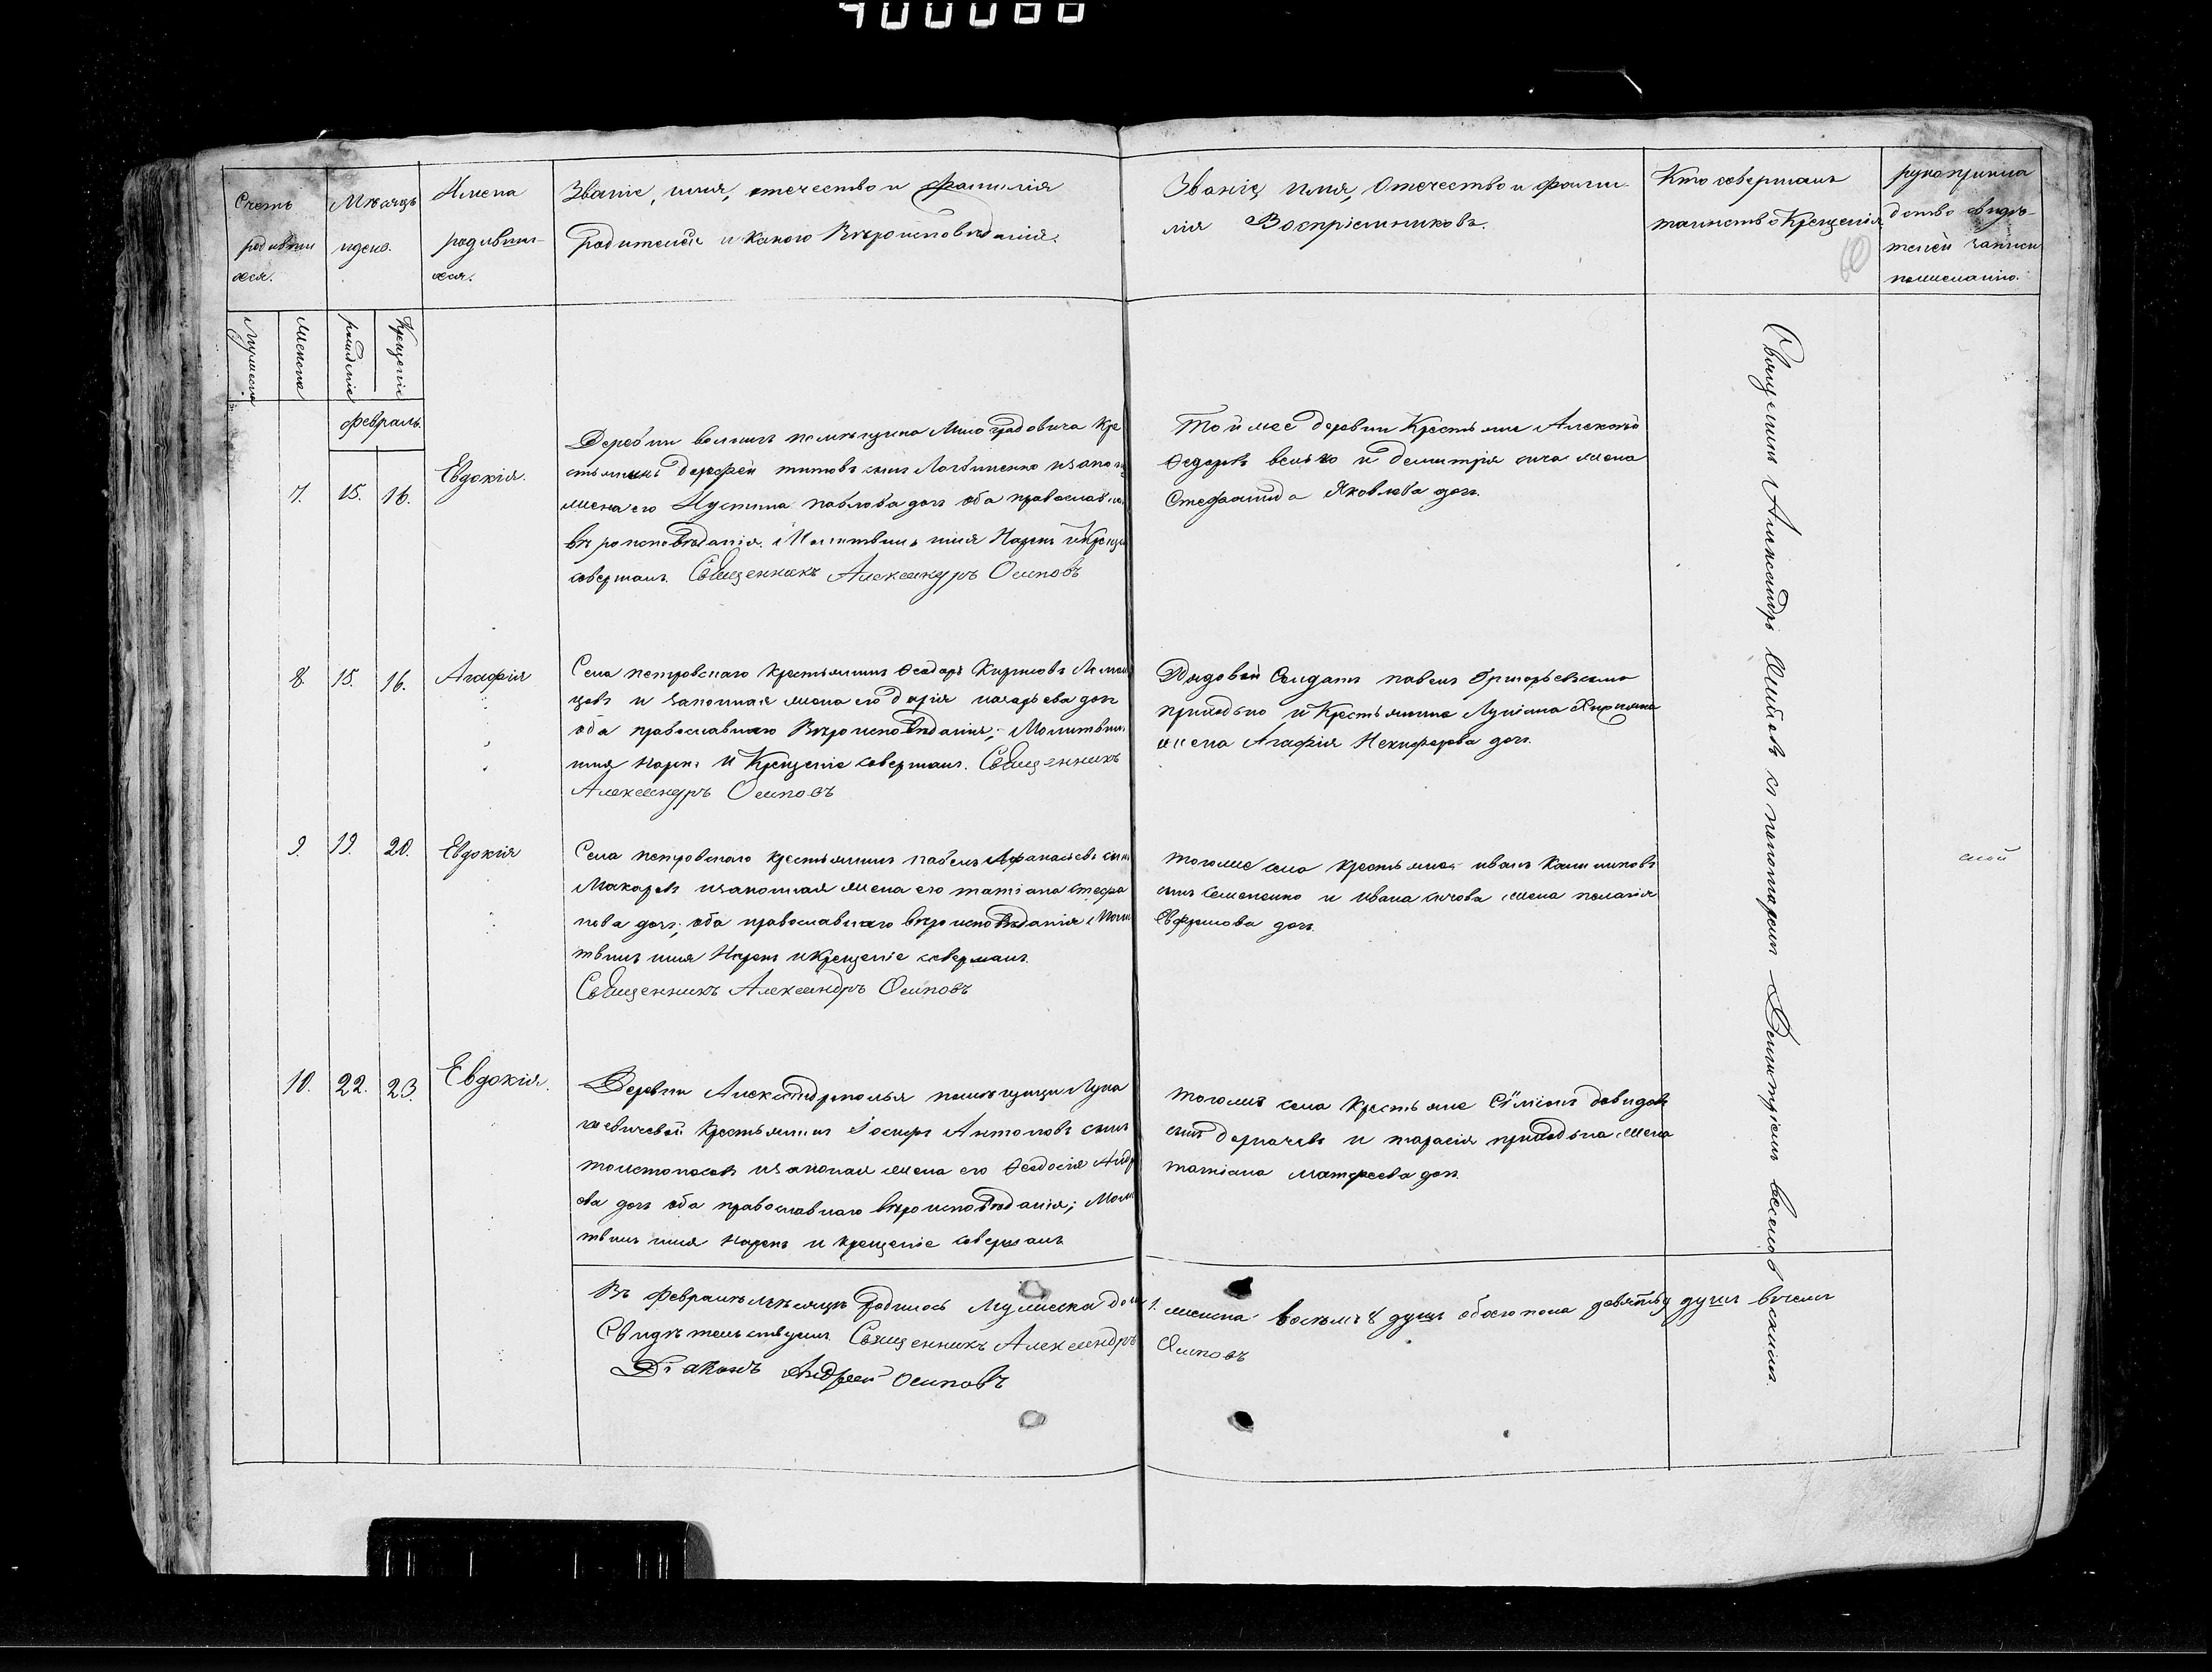 Счетъ
родивши
хся.
Мѣсяцъ
и день.
Имена
родивши-
хся.
Званіе, имя, отечество и фамилія
родителей и какого Вѣроисповѣданія.
Званіе, имя, Отечество и фами-
лія Воспріемниковъ.
Кто совершалъ
таинство Крещенія.
рукоприкла
дство свидѣ-
телей записи
по желанію.
Мужеска
Женска
рожденіе
Крещеніе
февраль.
7. 15. 16. Евдокія.
помѣщика Милорадовича Кре
титовъ сынъ и законн
жена его Іустина павлова дочь оба православнаго
вѣроисповѣданія. Молитвилъ имя Нарекъ и Крещ
совершалъ. Священникъ Александръ Осиповъ
Той же деревни Крестьяне Алексѣй
Федоровъ и Демитрія жена
Стефанида Яковлева дочь.
8. 15. 16. Агафія
Села петровскаго Крестьянинъ Феодоръ Кириловъ
и законная жена его дарія назарьева дочь
оба православнаго Вѣроисповѣданія; Молитвилъ
имя Нарекъ и Крещеніе совершалъ. Священникъ
Александръ Осиповъ
Рядовой Солдатъ павелъ Григорьевъ
приходько и Крестьянина Лукіана
жена Агафія Некифорова дочь.
9. 19. 20. Евдокія
Села петровскаго крестьянинъ павелъ Афанасьевъ сынъ
Макаровъ и законная жена его татіана стефа
нова дочь; оба православнаго вѣроисповѣданія Моли
твилъ имя Нарекъ и Крещеніе совершалъ.
Священникъ Александръ Осиповъ
тогоже села крестьяне иванъ
сынъ Семененко и ивана жена пелагія
Евфимова дочь.
10. 22. 23. Евдокія.
Деревни Александрополья помѣщицы Лука
шевичевой Крестьянинъ Іосифъ Антоновъ сынъ
толстоносовъ и законная жена его Феодосія Андр
ева дочь оба православнаго вѣроисповѣданія; Моли
твилъ имя Нарекъ и крещеніе совершалъ
тогоже села Крестьяне Сѵмеонъ давидовъ
сынъ и тарасія приходька жена
татіана матфеева дочь.
Священникъ Александръ Осиповъ съ пономаремъ Демитріемъ
Въ февралѣ мѣсяцѣ родилось Мужеска 1. женска восемь 8 душъ обоего пола девять 9 душъ
Свидѣтельствуемъ Священникъ Александръ Осиповъ
Діаконъ Андрей Осиповъ